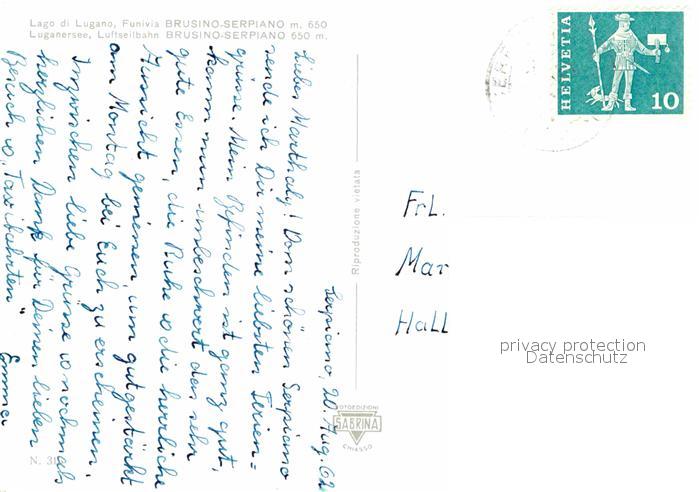 Lago di Lugano, Funivia BRUSINO-SERPIANO m. 650
Luganersee, Luftseilbahn BRUSINO-SERPIANO 650 m.
Serpiano, 20. Aug. 62
Liebes Marthaly! Vom schönen Serpiano
sende ich Dir meine liebsten Ferien=
grüsse. Mein Befinden ist ganz gut,
kann nun unbeschwert das sehr
gute Essen, die Ruhe u die herrliche
Aussicht geniessen, um gutgestärkt
am Montag bei Euch zu erscheinen.
Inzwischen liebe Grüsse u nochmals
herzlichen Dank für Deinen lieben
Besuch u. "Taxifahrten"
Emma
Riproduzione vietata
FOTOEDIZIONI
SABRINA
CHIASSO
N. 31
HELVETIA
10
Frl.
Mar
Hall
privacy protection
Datenschutz